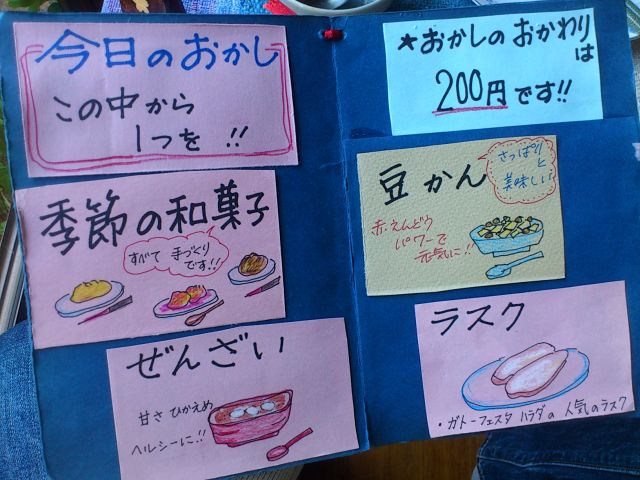 今日のおかし
この中から
1つを !!
季節の和菓子
すべて 手づくり
です!!
ぜんざい
甘さ ひかえめ
ヘルシーに!!
★おかしの おかわり
は
200円です!!
豆かん
さっぱり
と
美味しい
赤えんどう
パワーで
元気に!!
ラスク
・ガトーフェスタ ハラダの 人気のラスク